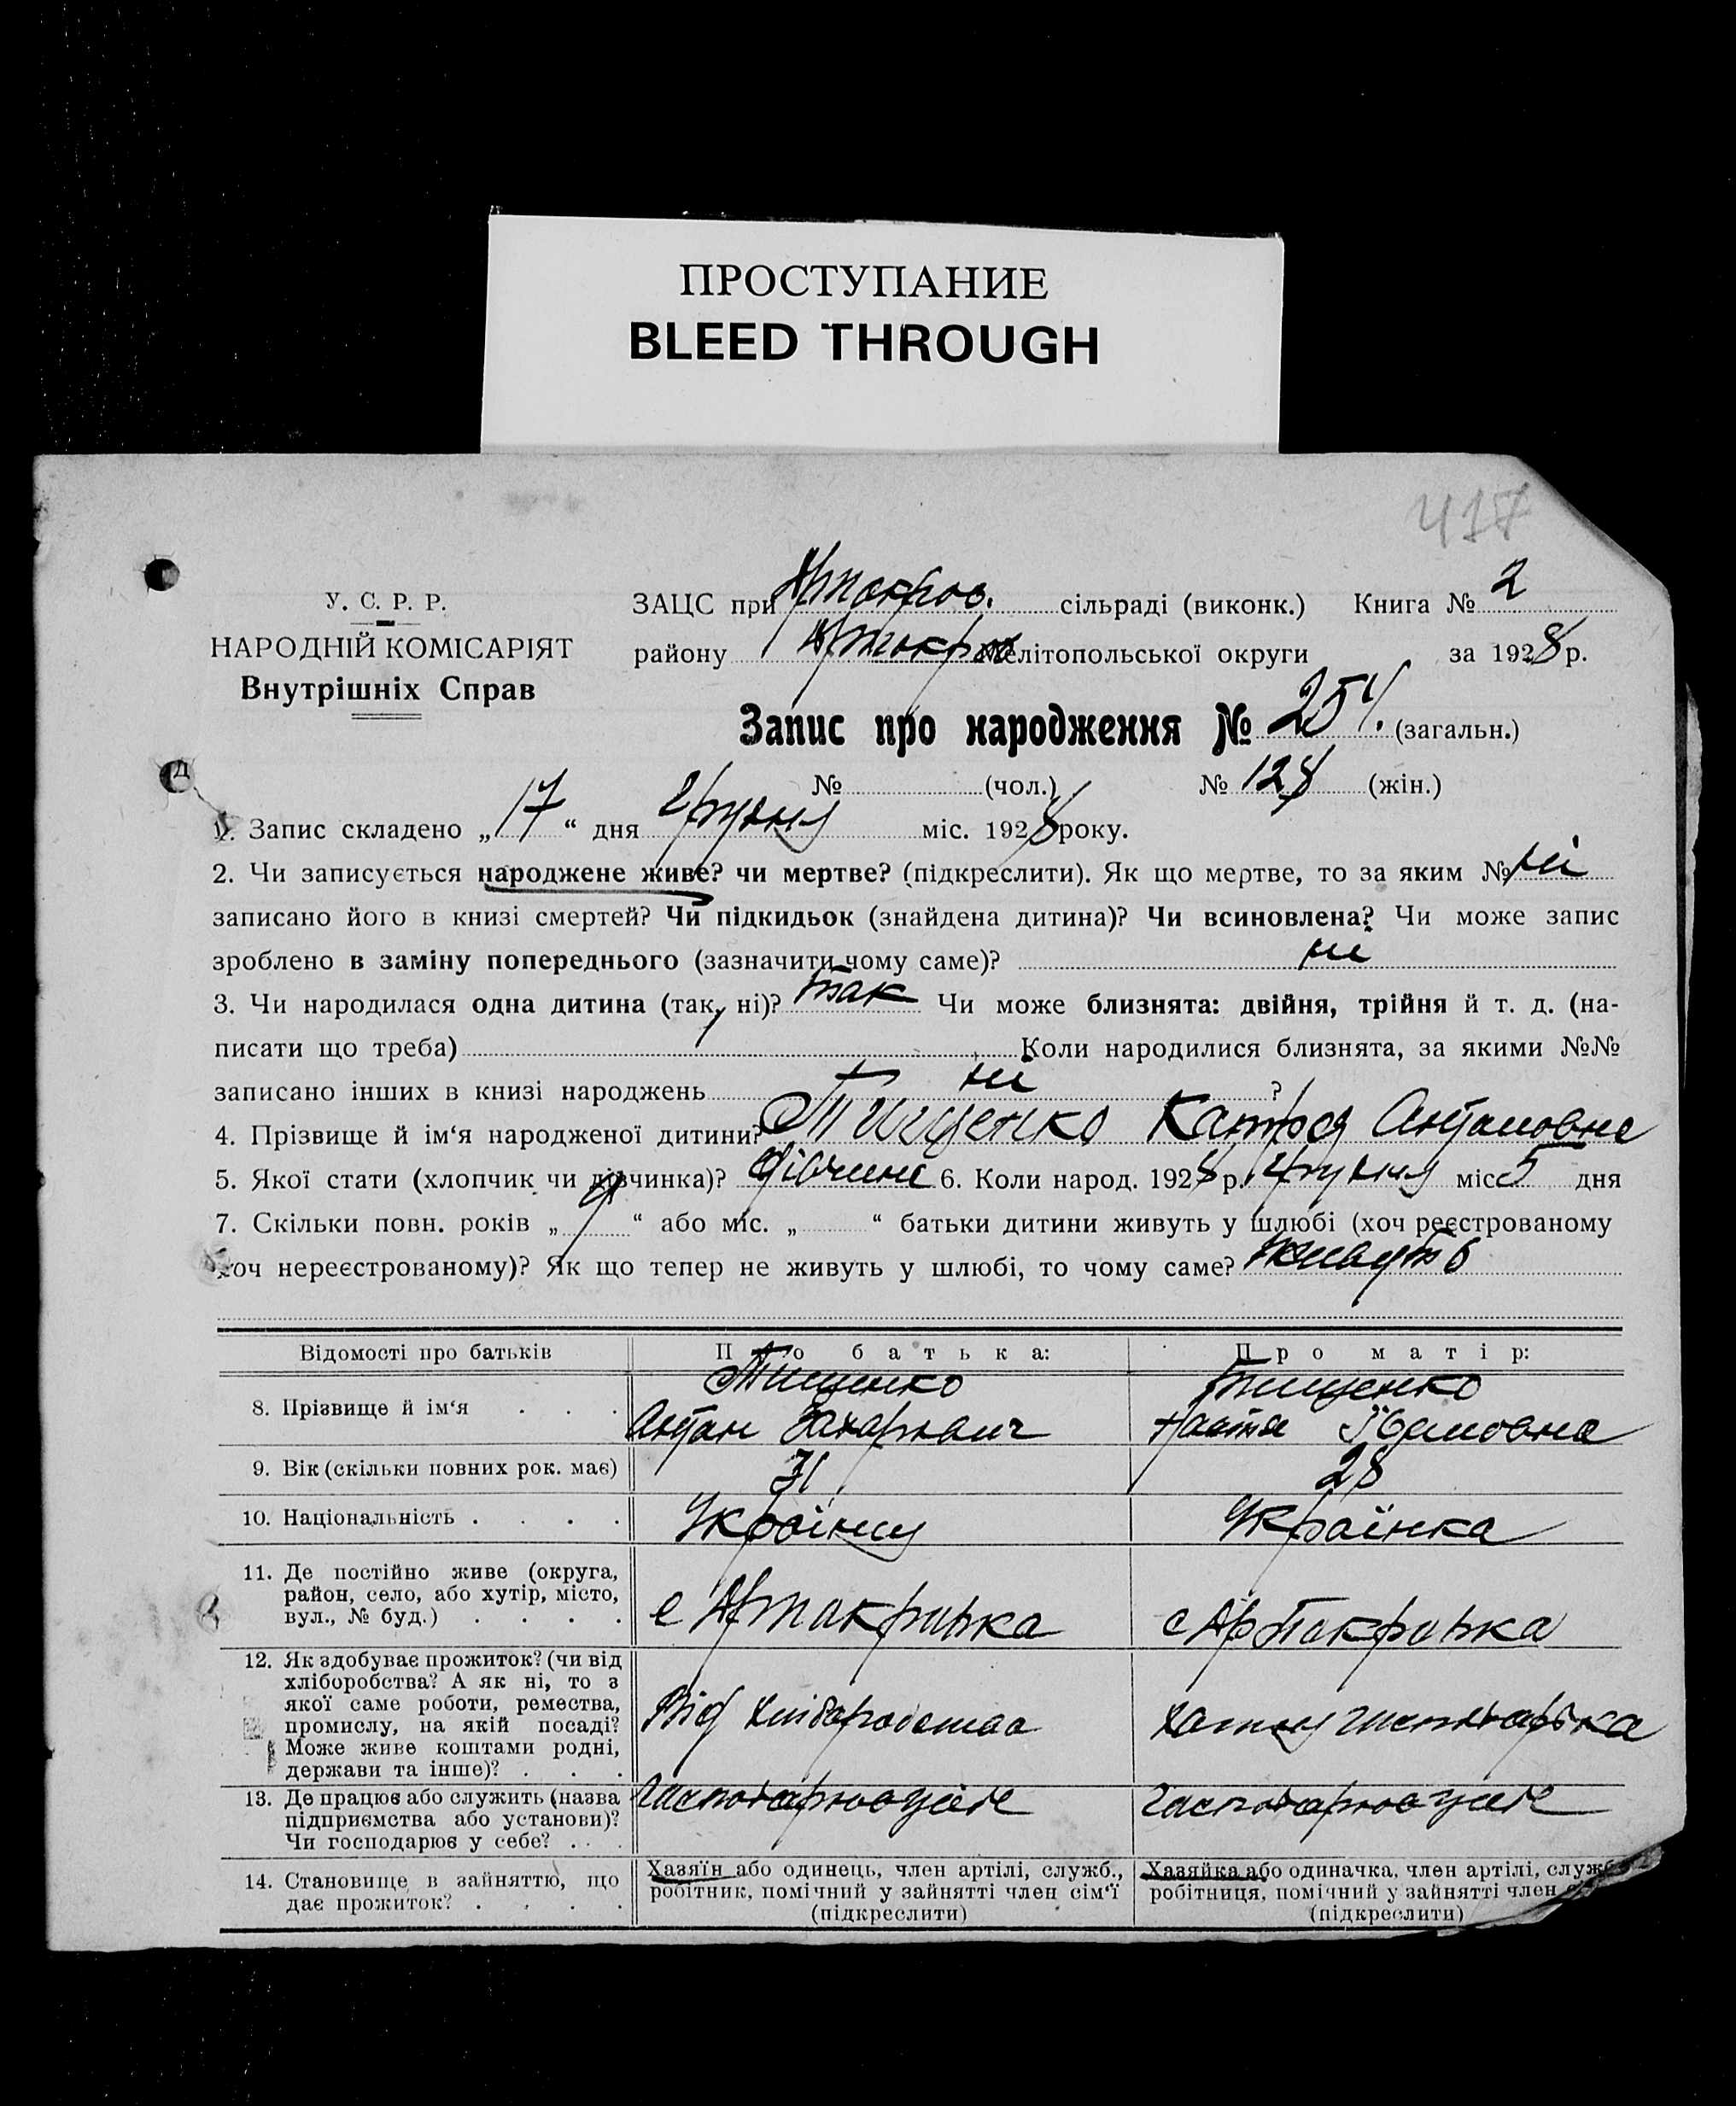 ПРОСТУПАНИЕ
BLEED THROUGH
417
У. С. Р. Р.
НАРОДНІЙ КОМІСАРІЯТ
Внутрішніх Справ
ЗАЦС при сільраді (виконк.) Книга № 2
району Мелітопольської округи за 1928 р.
Запис про народження № 254. (загальн.)
№ (чол.) № 128 (жін.)
1. Запис складено „17“ дня Грудня міс. 1928 року.
2. Чи записується народжене живе? чи мертве? (підкреслити). Як що мертве, то за яким № ні
записано його в книзі смертей? Чи підкидьок (знайдена дитина)? Чи всиновлена? Чи може запис
зроблено в заміну попереднього (зазначити чому саме)? ні
3. Чи народилася одна дитина (так, ні)? так Чи може близнята: двійня, трійня й т. д. (на-
писати що треба) Коли народилися близнята, за якими №№
записано інших в книзі народжень ні ?
4. Прізвище й ім‘я народженої дитини? Тищенко Катря Антоновна
5. Якої стати (хлопчик чи дівчинка)? дівчина 6. Коли народ. 1928 р. Грудня міс. 5 дня
7. Скільки повн. років „9“ або міс. „ “ батьки дитини живуть у шлюбі (хоч реєстрованому
хоч нереєстрованому)? Як що тепер не живуть у шлюбі, то чому саме? живуть
Відомості про батьків Про батька: Про матір:
8. Прізвище й ім‘я . . . Тищенко Антон Захарович Тищенко Настя
9. Вік (скільки повних рок. має) 31 28
10. Національність . . . . Українец Українка
11. Де постійно живе (округа,
район, село, або хутір, місто,
вул., № буд.) . . . . с Артакровка с Артакровка
12. Як здобуває прожиток? (чи від
хліборобства? А як ні, то з
якої саме роботи, ремества,
промислу, на якій посаді?
Може живе коштами родні,
держави та інше)? . . . Від хліборобства хатня господарька
13. Де працює або служить (назва
підприємства або установи)?
Чи господарює у себе? . . . Господарює у себе Господарює у себе
14. Становище в зайняттю, що
дає прожиток? . . . .
Хазяїн або одинець, член артілі, служб.,
робітник, помічний у зайнятті член сім‘ї
(підкреслити)
Хазяйка або одиначка, член артілі, служб
робітниця, помічний у зайнятті член
(підкреслити)